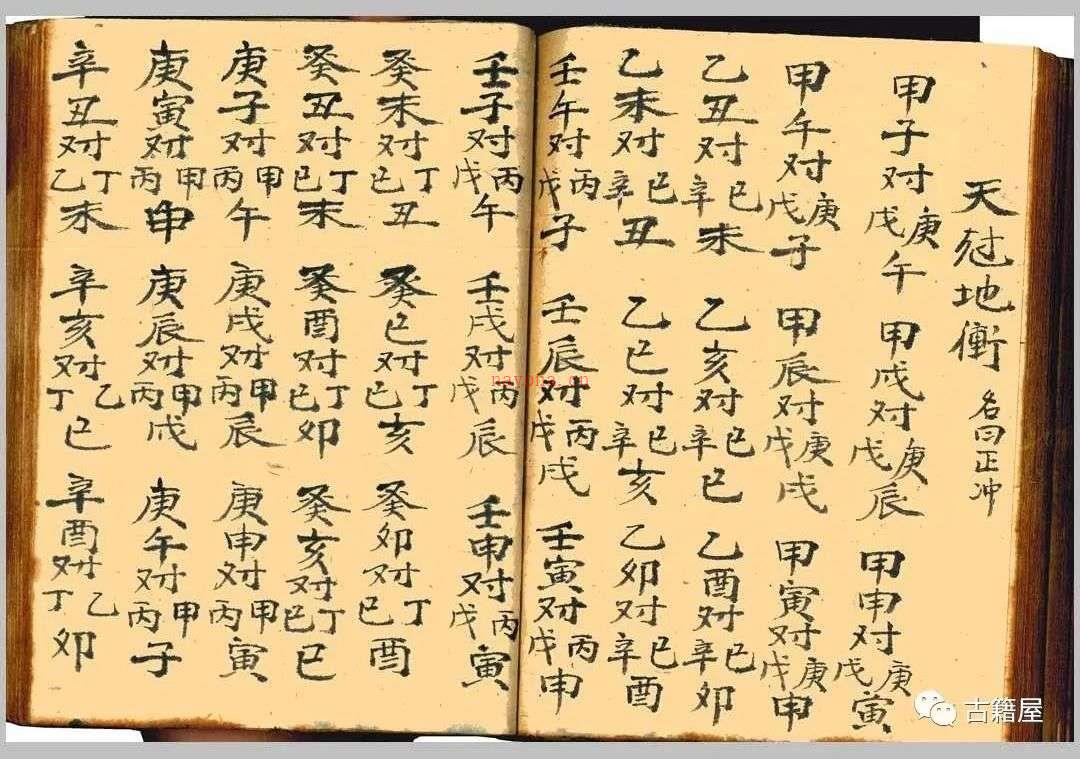 天尅地衝 名曰正冲
甲子对庚戊午 甲戌对庚戊辰 甲申对庚戊寅
甲午对庚戊子 甲辰对庚戊戌 甲寅对庚戊申
乙丑对己辛未 乙亥对己辛巳 乙酉对己辛卯
乙未对己辛丑 乙巳对己辛亥 乙卯对己辛酉
壬午对丙戊子 壬辰对丙戊戌 壬寅对丙戊申
壬子对丙戊午 壬戌对丙戊辰 壬申对丙戊寅
癸未对丁己丑 癸巳对丁己亥 癸卯对丁己酉
癸丑对丁己未 癸酉对丁己卯 癸亥对丁己巳
庚子对甲丙午 庚戌对甲丙辰 庚申对甲丙寅
庚寅对甲丙申 庚辰对甲丙戌 庚午对甲丙子
辛丑对丁乙未 辛亥对乙丁巳 辛酉对乙丁卯
nayona.cn
古籍屋